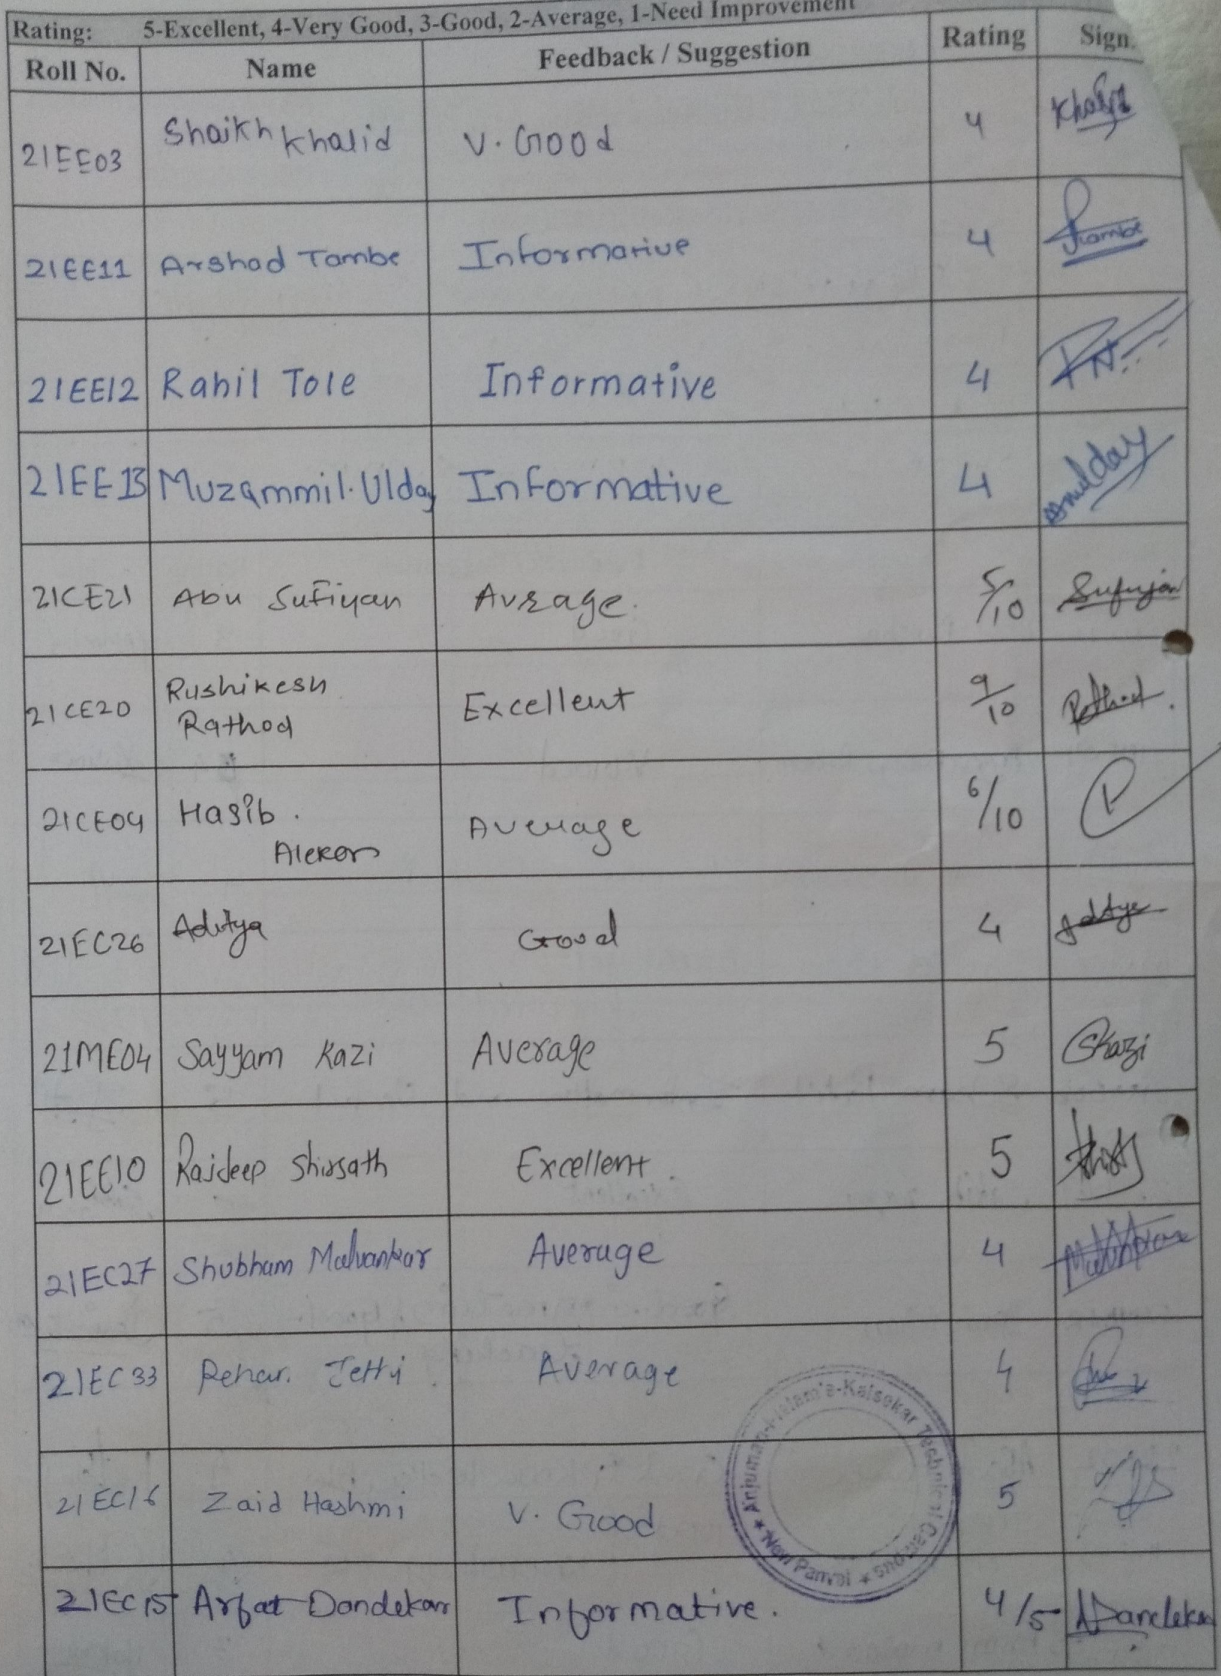 Rating: 5-Excellent, 4-Very Good, 3-Good, 2-Average, 1-Need Improvement
Roll No. Name Feedback / Suggestion Rating Sign.
21EE03 Shaikh Khalid V. Good 4 Khalid
21EE11 Arshad Tambe Informative 4 Tambe
21EE12 Rahil Tole Informative 4
21EE13 Muzammil. Ulday Informative 4 Mulday
21CE21 Abu Sufiyan Average. 5/10 Sufiyan
21CE20 Rushikesh
Rathod Excellent 9/10 Rathod.
21CE04 Hasib.
Alekar Average 6/10
21EC26 Aditya Good 4 Aditya
21ME04 Sayyam Kazi Average 5 SKazi
21EE10 Rajdeep Shirsath Excellent. 5
21EC27 Shubham Malvankar Average 4
21EC33 Rehan. Jetti. Average 4
21EC16 Zaid Hashmi V. Good 5
Anjuman-I-Islam's-Kalsekar Technical Campus ★ New Panvel ★
21EC15 Arfat Dandekar Informative. 4/5 ADandekar